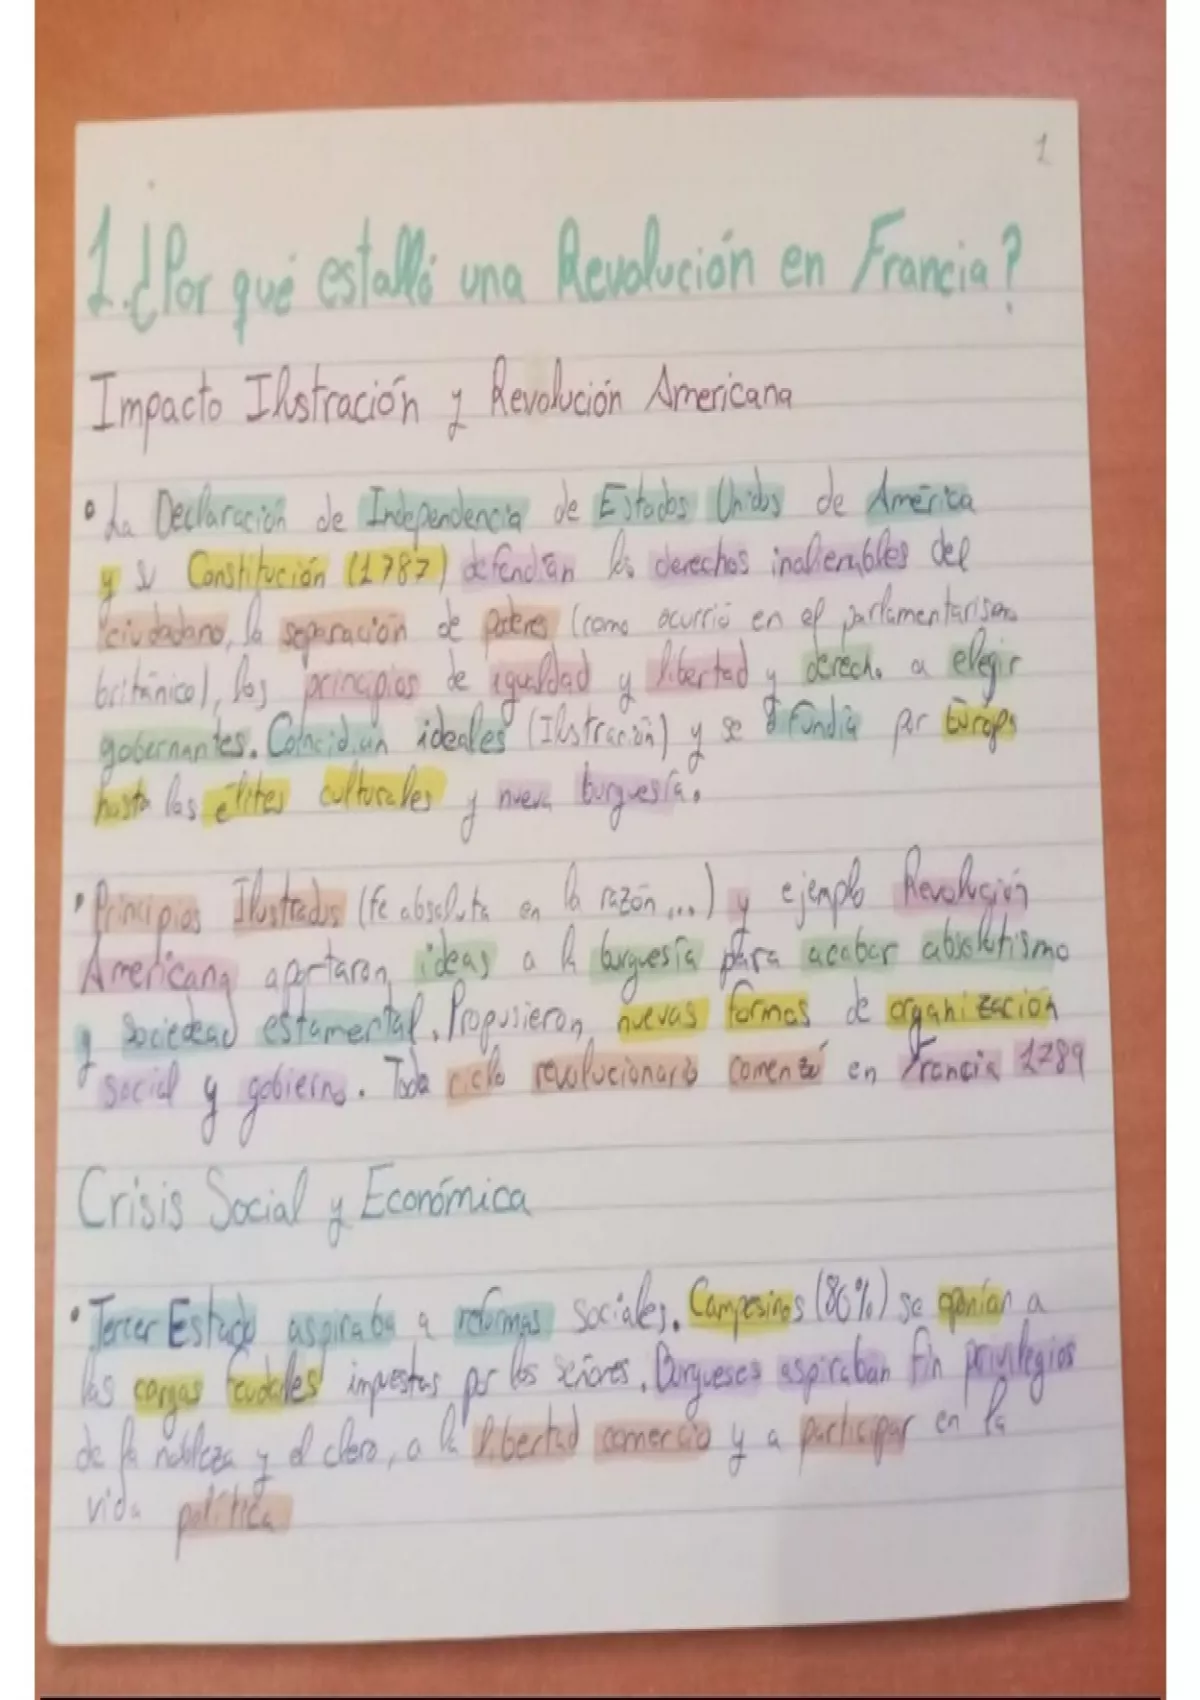 1
1. ¿Por qué estalló una Revolución en Francia?
Impacto Ilustración y Revolución Americana
• La Declaración de Independencia de Estados Unidos de América
y su Constitución (1787) defendían los derechos inalienables del
ciudadano, la separación de poderes (como ocurrió en el parlamentarismo
británico), los principios de igualdad y libertad y derecho a elegir
gobernantes. Coincidían ideales (Ilustración) y se difundía por Europa
hasta las élites culturales y nueva burguesía.
• Principios Ilustrados (fe absoluta en la razón...) y ejemplo Revolución
Americana aportaron ideas a la burguesía para acabar absolutismo
y sociedad estamental. Propusieron nuevas formas de organización
social y gobierno. Todo ciclo revolucionario comenzó en Francia 1789
Crisis Social y Económica
• Tercer Estado aspiraba a reformas sociales. Campesinos (80%) se oponían a
las cargas feudales impuestas por los señores. Burgueses aspiraban fin privilegios
de la nobleza y el clero, a la libertad comercio y a participar en la
vida política